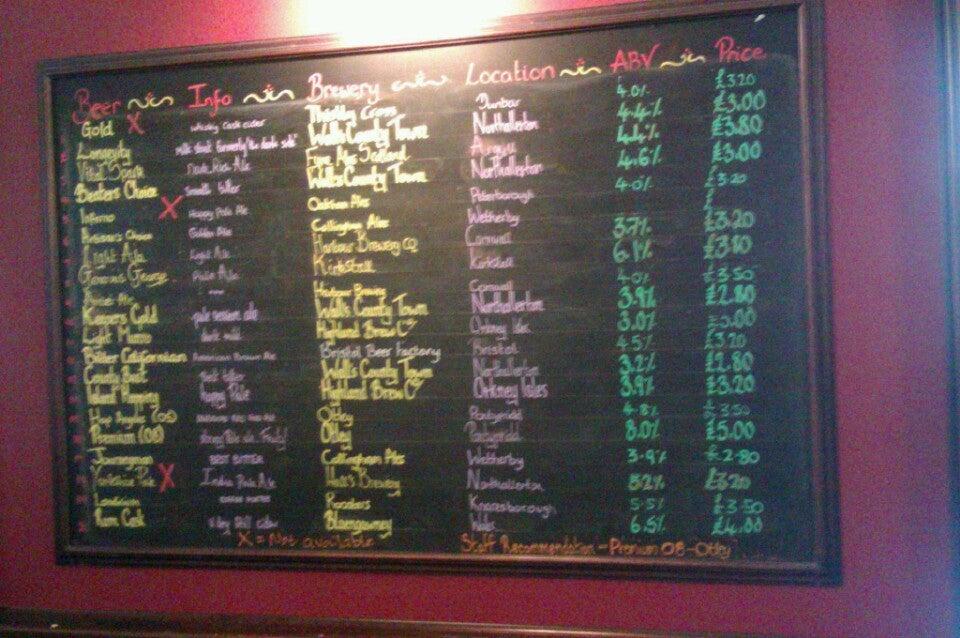 Beer Info Brewery Location ABV Price
Gold X Whisky Cask cider Thistly Cross Dunbar 4.0% £3.20
Longevity milk stout formerly "the dark side" Wall's County Town Northallerton 4.4% £3.00
Vital Spark Dark Rich Ale Fyne Ales Scotland Argyll 4.4% £3.80
Beaters Choice Smooth bitter Wall's County Town Northallerton 4.6% £3.00
Inferno X Happy Pale Ale Oakham Ales Peterborough 4.0% £3.20
Golden Ale Collingham Ales Wetherby £
Light Ale Light Ale Harbour Brewery Co Cornwall 3.7% £3.20
George Kirkstall Kirkstall 6.1% £3.80
Harbour Brewing Cornwall 4.0% £3.50
Kingers Gold pale session ale Wall's County Town Northallerton 3.9% £2.80
Light Munro dark mild Highland Brew Co Orkney 3.0% £3.00
Bitter Californian American Brown Ale Bristol Beer Factory Bristol 4.5% £3.20
County Best Best bitter Wall's County Town Northallerton 3.2% £2.80
Island Hopping Hoppy Pale Highland Brew Co Orkney Isles 3.9% £3.20
Hop Angeles (OG) Otley Pontypridd 4.8% £3.50
Premium (O8) Strong Otley Pontypridd 8.0% £5.00
Journeyman BEST BITTER Collingham Ales Wetherby 3.9% £2.80
Yorkshire Pale X India Pale Ale Brewery Northallerton £3.20
Roosters Knaresborough 5.5% £3.50
Rum Cask still cider Blaengawney Wales 6.5% £4.00
X = Not available Staff Recommendation - Premium O8 - Otley